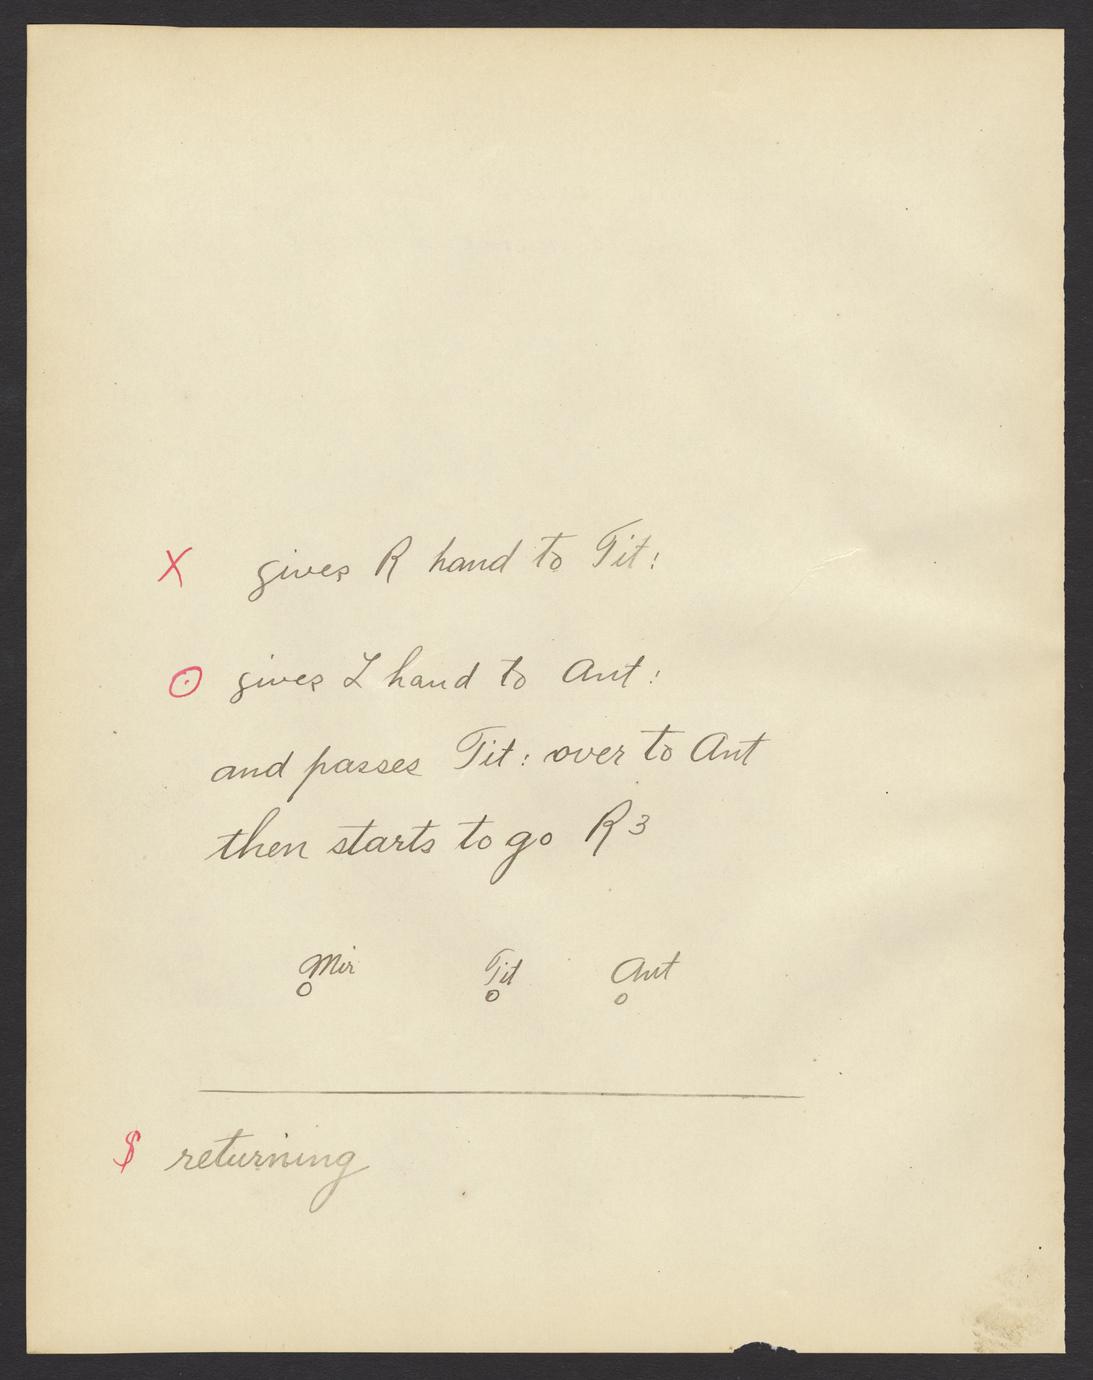 X gives R hand to Tit:
⊙ gives L hand to Ant:
and passes Tit: over to Ant
then starts to go R 3
Mir Tit Ant
$ returning